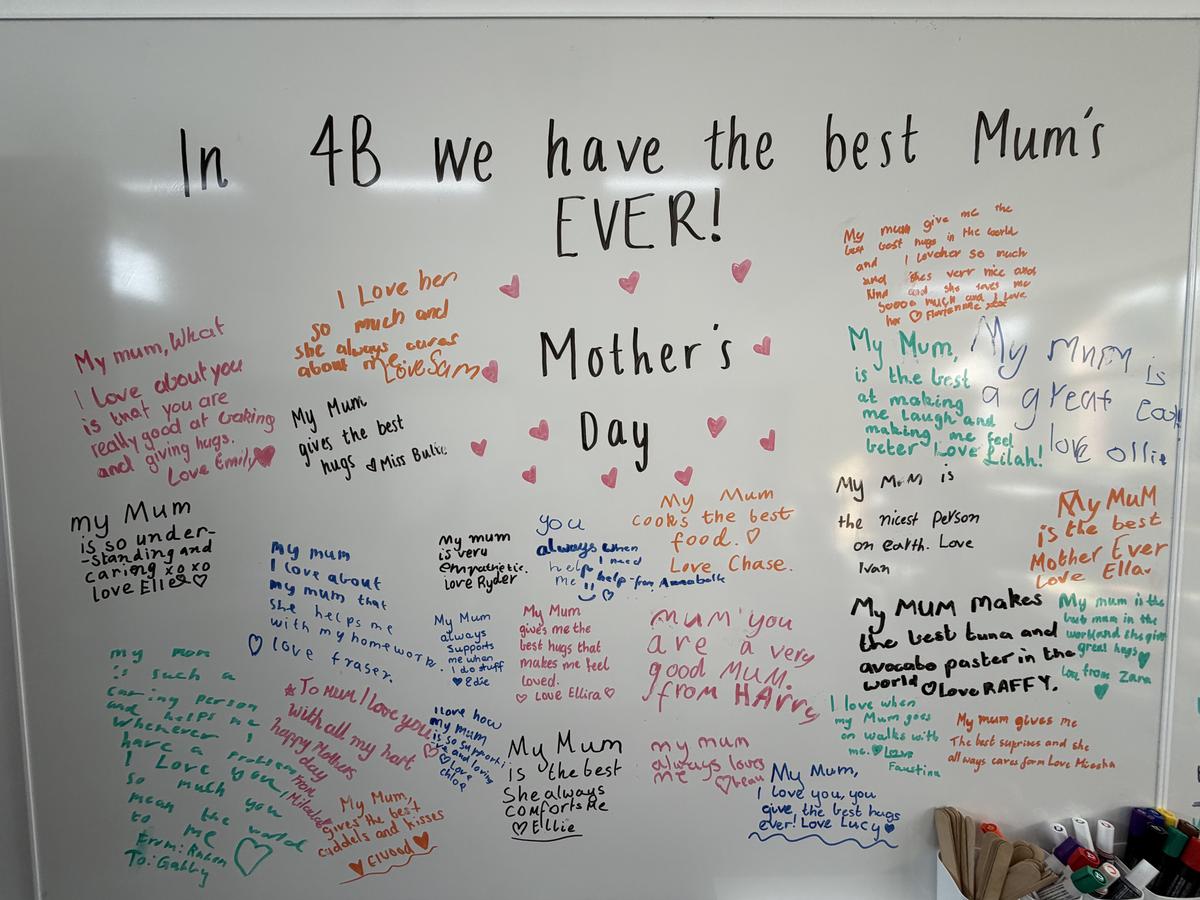 In 4B we have the best Mum's
EVER!
Mother's
Day
My mum, What
I love about you
is that you are
really good at craking
and giving hugs.
Love Emily
I Love her
so much and
she always cares
about me
Love Sam
My Mum
gives the best
hugs Miss Bulic
My mum give me the
best best hugs in the world
and I loveher so much
and shes verr nice and
kind and she loves me
soooo much and I love
her
My Mum,
is the best
at making
me laugh and
making me feel
beter Love Lilah!
My mum is
a great
love ollie
my Mum
is so under-
-standing and
caring xo xo
love Elle
my mum
I love about
my mum that
she helps me
with my homework.
love fraser.
My mum
is very
empathetic.
love Ryder
you
always when
help I need
me help from Annabelle
My Mum
cooks the best
food.
Love Chase.
My Mum is
the nicest person
on earth. Love
Ivan
My MuM
is the best
Mother Ever
Love Ella.
My Mum
always
supports
me when
I do stuff
Edie
My Mum
gives me the
best hugs that
makes me feel
loved.
Love Ellira
mum you
are a very
good MUM.
from HArry
My MUM makes
the best tuna and
avocabo paster in the
world Love RAFFY.
My mum is the
great hugs
love from Zara
my mum
is such a
caring person
and helps me
whenever I
have a problem
I Love you
so much you
mean the world
to me
From:
To: Gabby
To mum I love you
with all my hart
happy Mothers
day
from
My Mum,
gives the best
cuddels and kisses
Elwood
I love how
my mum
is so support
ive and loving
love
chloe
My Mum
is the best
She always
comforts me
Ellie
my mum
always loves
me beau
My Mum,
I love you, you
give the best hugs
ever! Love Lucy
I love when
my Mum goes
on walks with
me. Love
Faustina
My mum gives me
The best suprises and she
all ways cares form Love Micsha